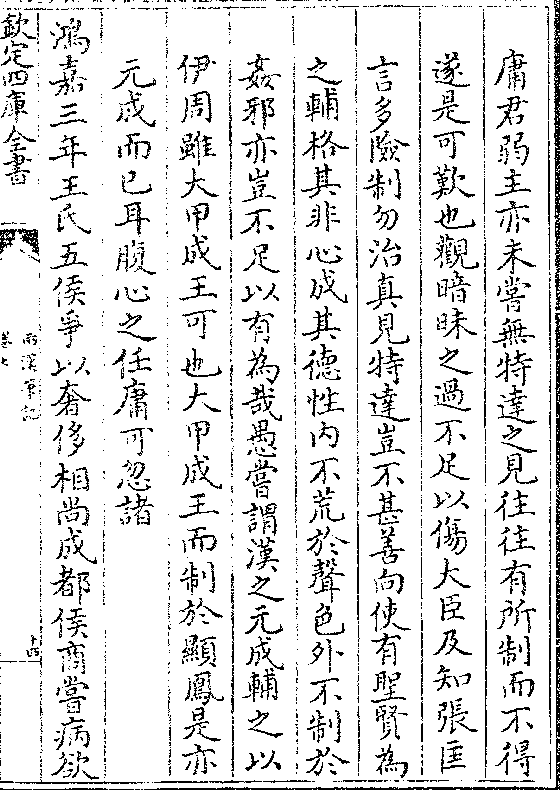 庸君弱主亦未嘗無特達之見往往有所制而不得
遂是可歎也觀暗昧之過不足以傷大臣及知張匡
言多險制勿治真見特達豈不甚善向使有聖賢為
之輔格其非心成其德性内不荒於聲色外不制於
姦邪亦豈不足以有為哉愚嘗謂漢之元成輔之以
伊周雖大甲成王可也大甲成王而制於顯鳳是亦
元成而已耳腹心之任庸可忽諸
鴻嘉三年王氏五侯爭以奢侈相尚成都侯商嘗病欲
欽定四庫全書
兩漢筆記
十四